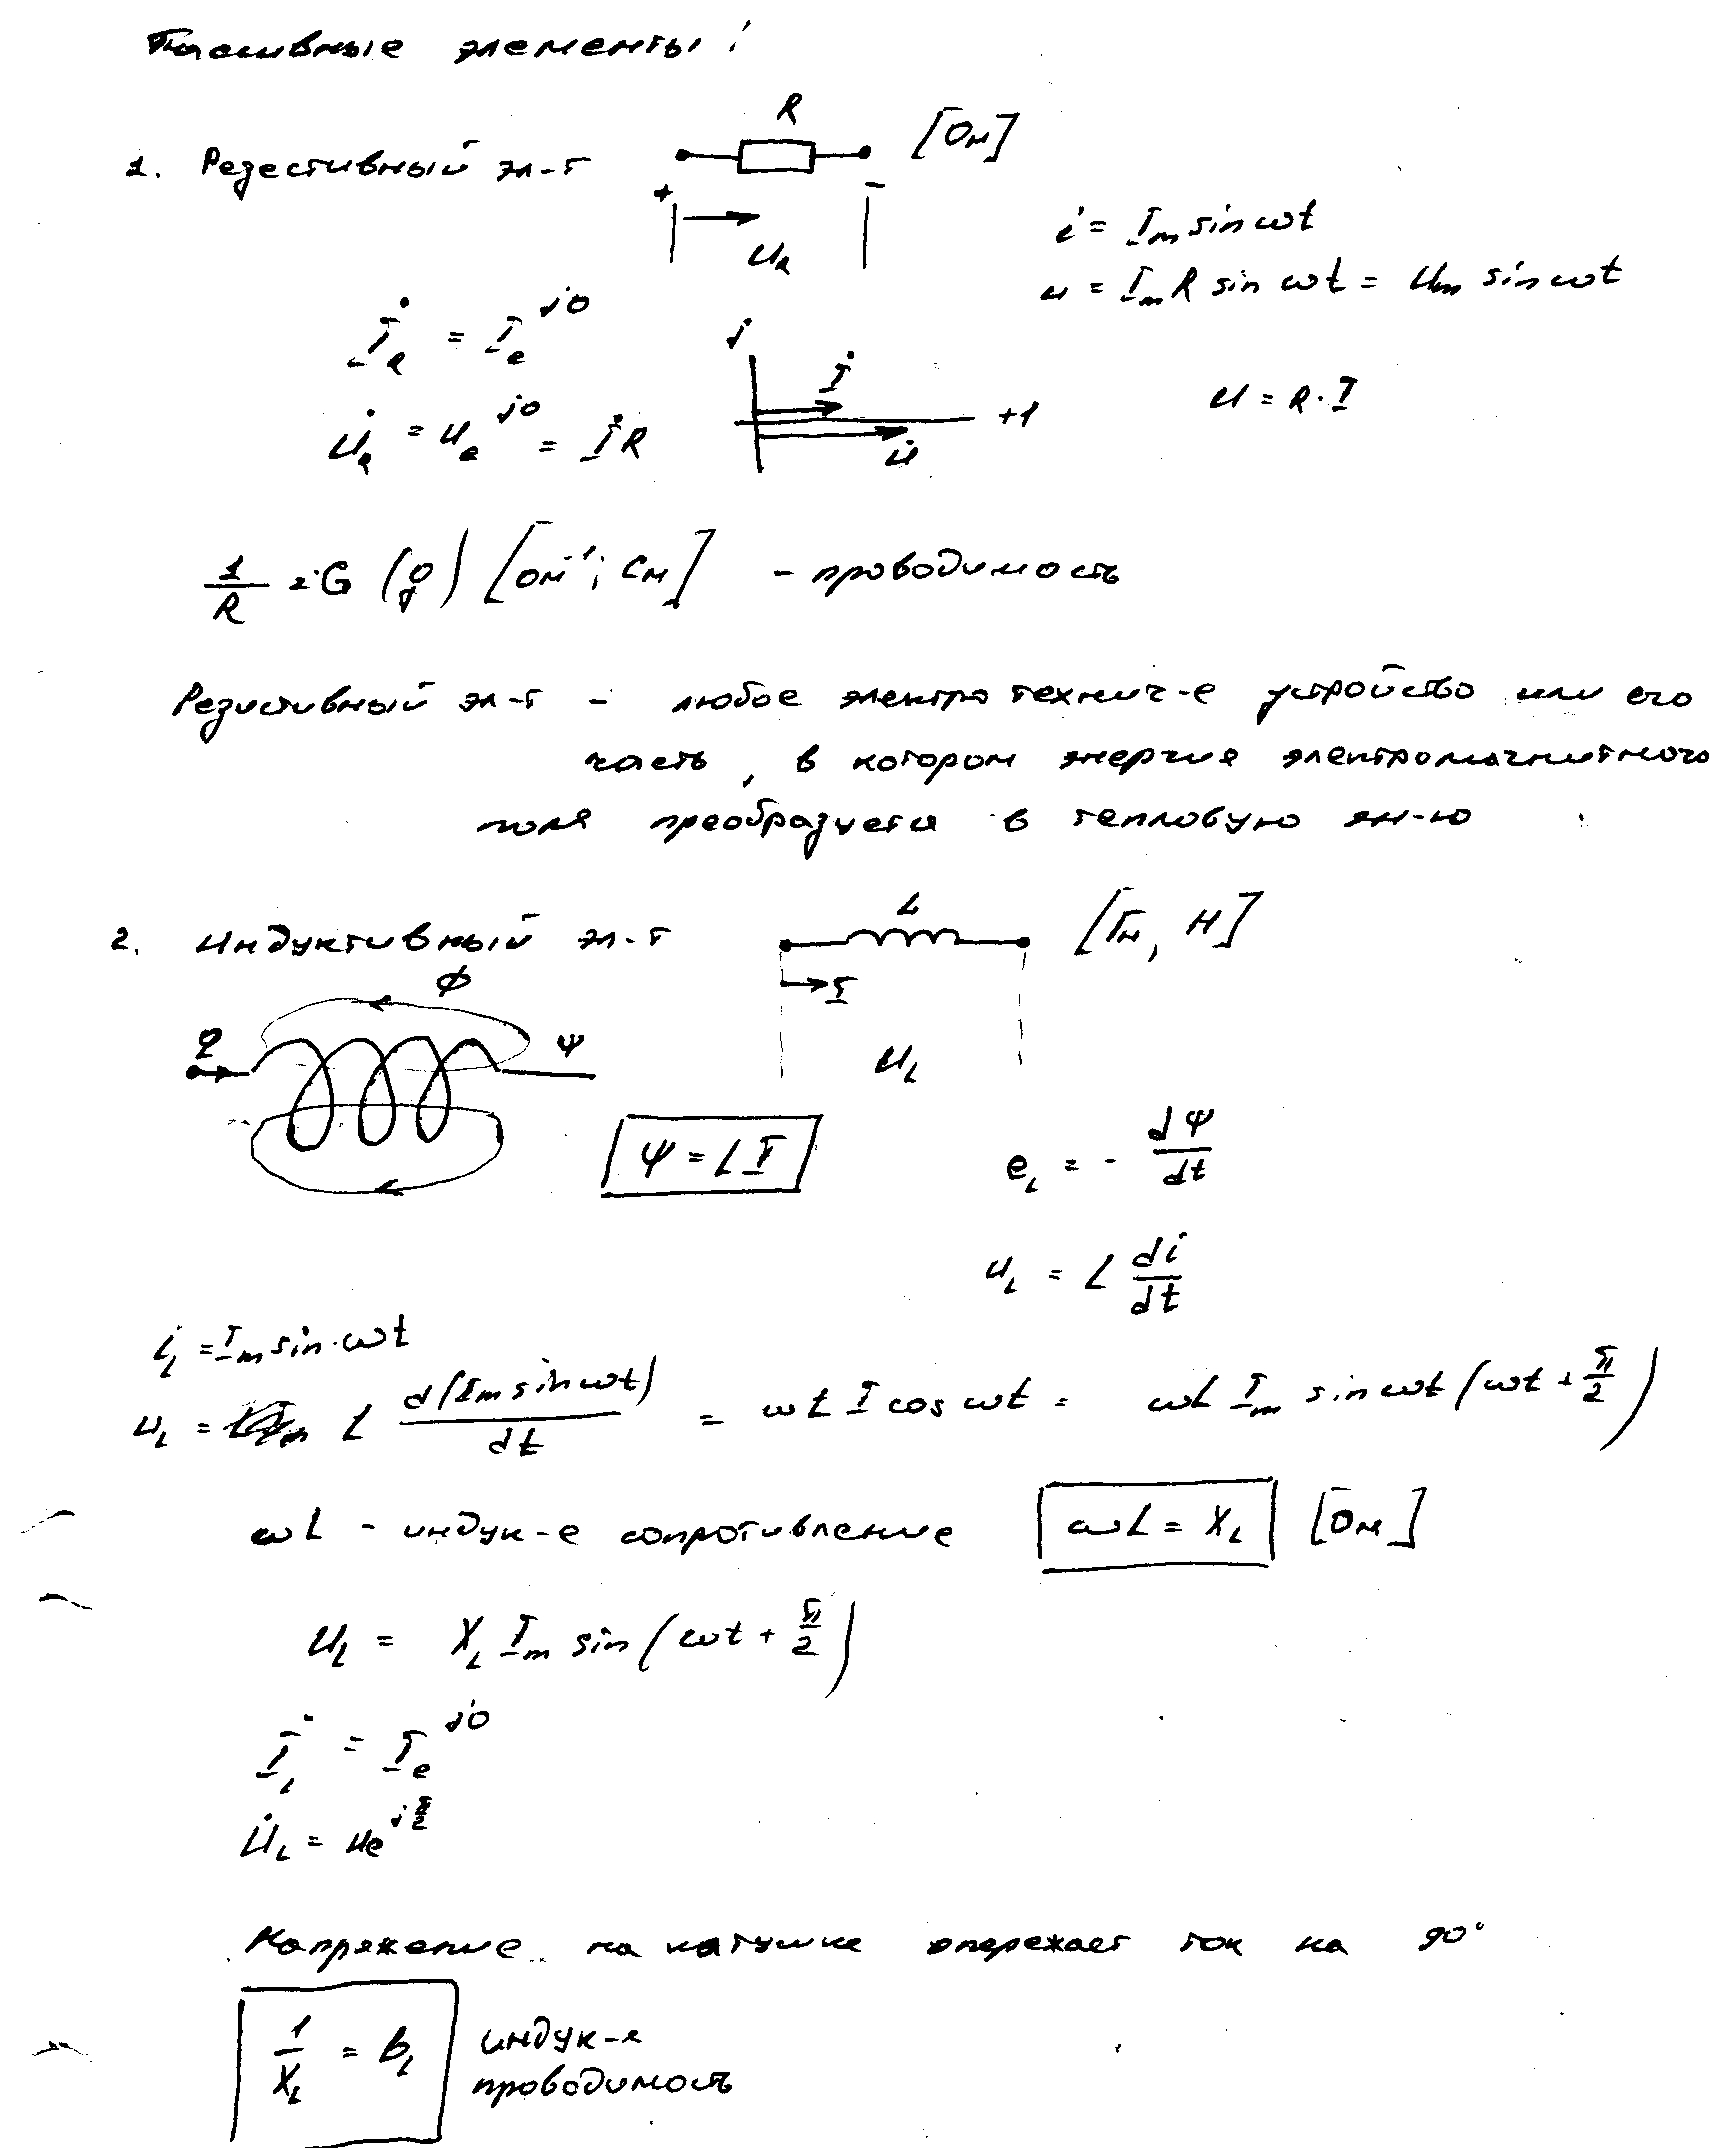 Пассивные элементы:
R
1. Резестивный эл-т [Ом]
+ -
U_R
i = I_m sin ωt
u = I_m R sin ωt = U_m sin ωt
İ_R = I e^{j0}
U̇_R = U e^{j0} = İ R
j
İ
+1
U̇
U = R · I
1/R = G (g) [Ом⁻¹; См] - проводимость
Резистивный эл-т - любое электротехнич-е устройство или его
часть, в котором энергия электромагнитного
поля преобразуется в тепловую эн-ю
L
2. Индуктивный эл-т [Гн, H]
Φ
I
ψ
U_L
ψ = L I
e_L = - dψ/dt
u_L = L di/dt
i_L = I_m sin ωt
u_L = L d(I_m sin ωt)/dt = ωL I cos ωt = ωL I_m sin ωt (ωt + π/2)
ωL - индук-е сопротивление ωL = X_L [Ом]
U_L = X_L I_m sin (ωt + π/2)
İ_L = I e^{j0}
U̇_L = U e^{j π/2}
Напряжение на катушке опережает ток на 90°
1/X_L = b_L индук-я
проводимость